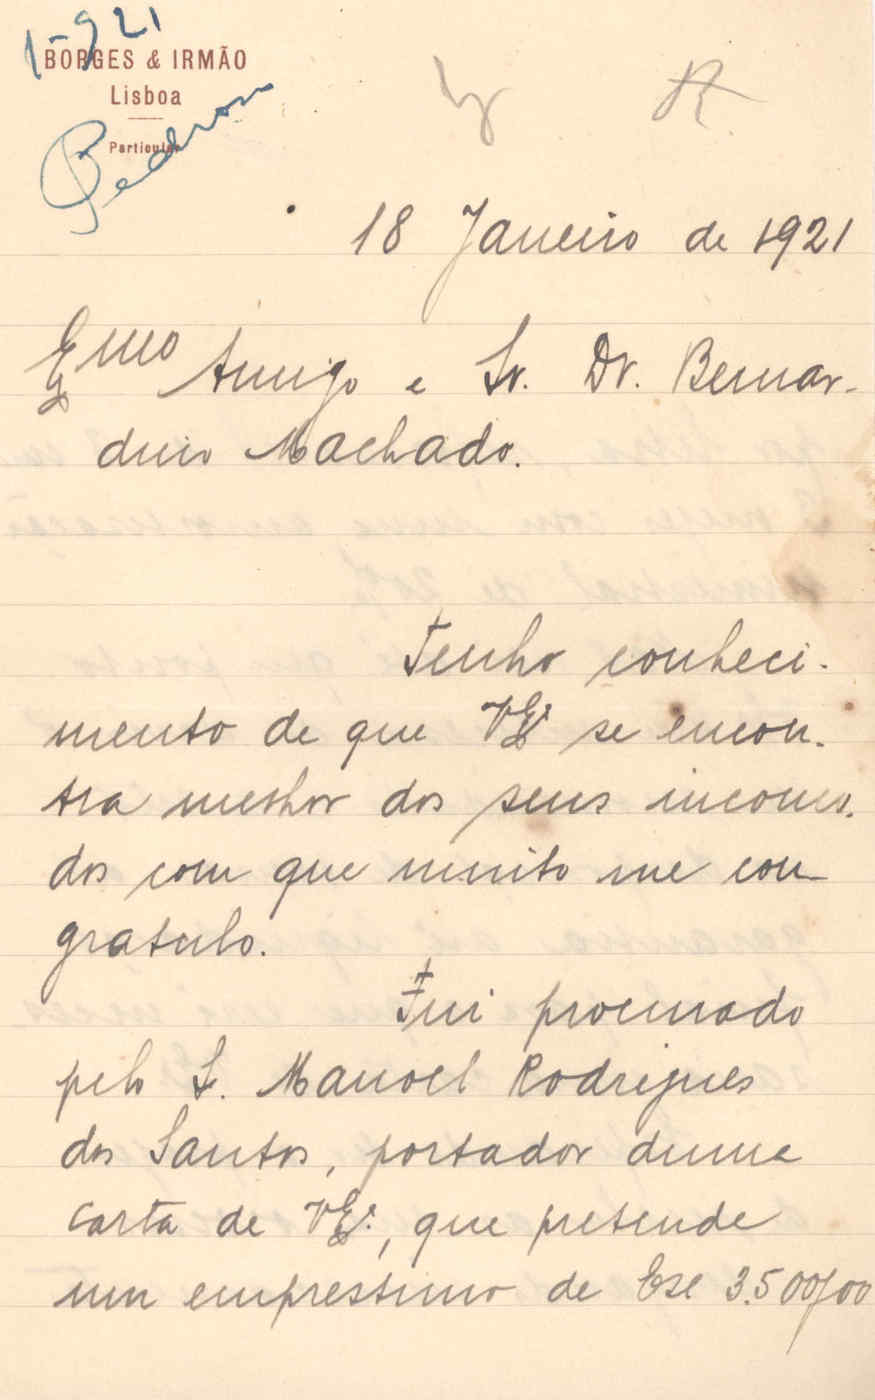 1-921
BORGES & IRMÃO
Lisboa
Particular
R.
18 Janeiro de 1921
Exmo Amigo e Sr. Dr. Bernar-
dino Machado.
Tenho conheci-
mento de que VEx.ª se encon-
tra melhor dos seus incomo-
dos com que muito me con-
gratulo.
Fui procurado
pelo S. Manoel Rodrigues
dos Santos, portador duma
carta de VEx.ª, que pretende
um emprestimo de Esc 3.500$00